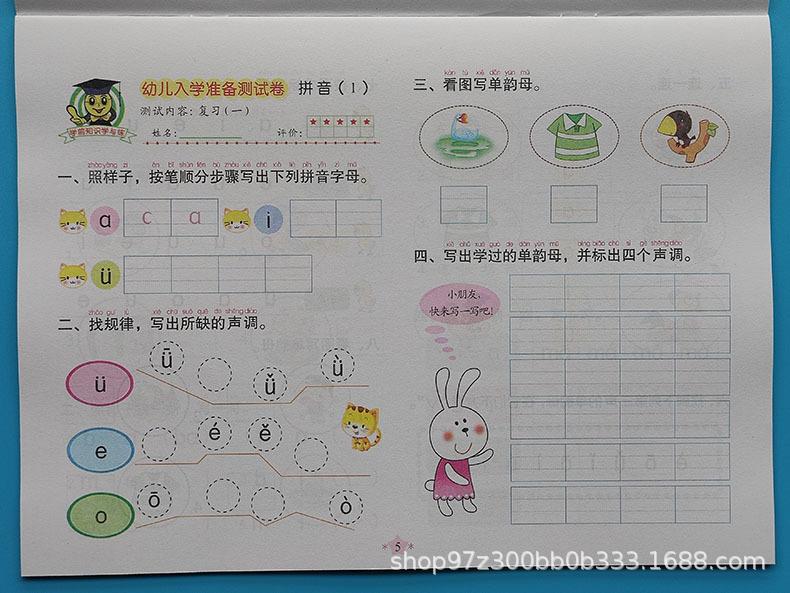 幼儿入学准备测试卷 拼音（1）
测试内容：复习（一）
姓名： 评价：★★★★★
学前知识学与练
zhào yàng zi àn bǐ shùn fēn bù zhòu xiě chū xià liè pīn yīn zì mǔ
一、照样子，按笔顺分步骤写出下列拼音字母。
ɑ c ɑ i
ü
zhǎo guī lǜ xiě chū suǒ quē de shēng diào
二、找规律，写出所缺的声调。
ü ǖ ǚ ǜ
e é ě
o ō ò
kàn tú xiě dān yùn mǔ
三、看图写单韵母。
xiě chū xué guò de dān yùn mǔ bìng biāo chū sì gè shēng diào
四、写出学过的单韵母，并标出四个声调。
小朋友，
快来写一写吧！
5
shop97z300bb0b333.1688.com